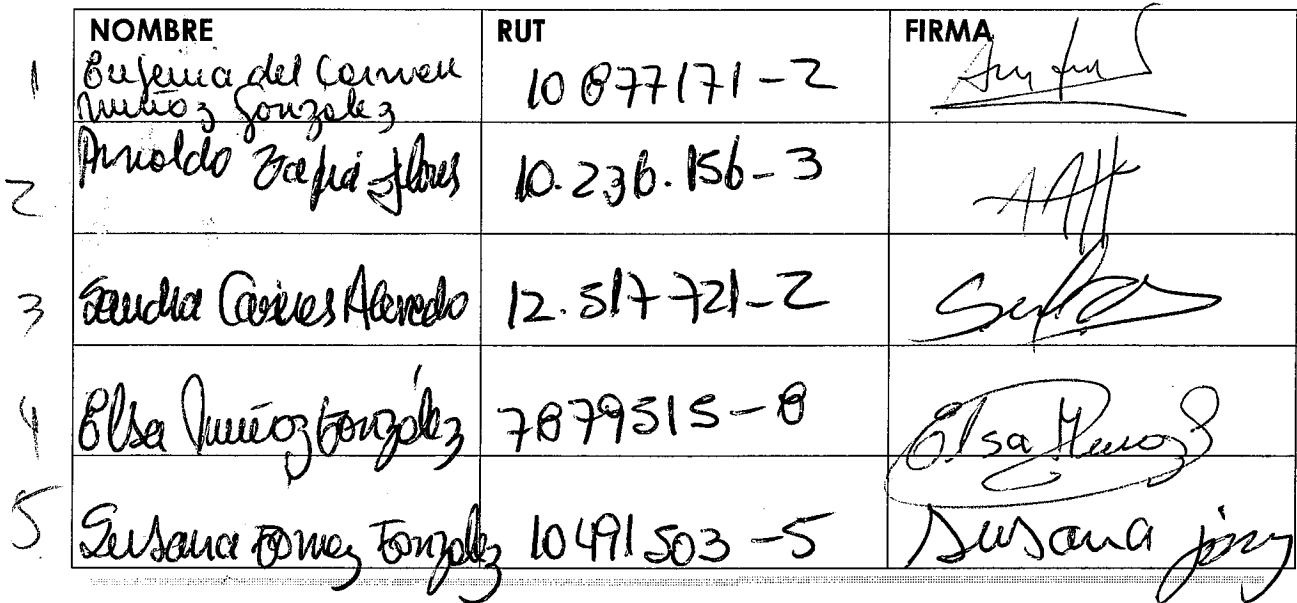 NOMBRE RUT FIRMA
1 Eugenia del Carmen 10877171-2
Muñoz Gonzalez
2 Arnoldo Tapia Flores 10.236.156-3
3 Sandra Acevedo 12.517721-2
4 Elsa Muñoz González 7879515-8 Elsa Munoz
5 Susana Gomez Gonzalez 10491503-5 Susana